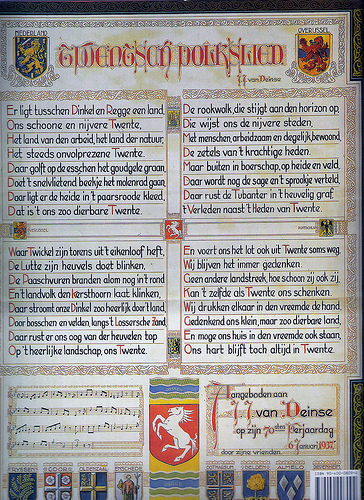 NEDERLAND
OVERIJSSEL
Twentsch Volkslied
J.J. van Deinse
Er ligt tusschen Dinkel en Regge een land,
Ons schoone en nijvere Twente,
Het land van den arbeid, het land der natuur,
Het steeds onvolprezene Twente.
Daar golft op de esschen het goudgele graan,
Doet 't snelvlietend beekje het molenrad gaan,
Daar ligt er de heide in 't paarsroode kleed,
Dat is 't ons zoo dierbare Twente.
De rookwolk, die stijgt aan den horizon op,
Die wijst ons de nijvere steden,
Met menschen, arbeidzaam en degelijk, bewoond,
De zetels van 't krachtige heden.
Maar buiten in boerschap, op heide en veld,
Daar wordt nog de sage en 't sprookje verteld,
Daar rust de Tubanter in 't heuvelig graf
't Verleden naast 't Heden van Twente.
Waar Twickel zijn torens uit 't eikenloof heft,
De Lutte zijn heuvels doet blinken,
De Paaschvuren branden alom nog in 't rond
En 't landvolk den kersthoorn laat klinken,
Daar stroomt onze Dinkel zoo heerlijk door 't land,
Door bosschen en velden, langs 't Lossersche Zand,
Daar rust er ons oog van der heuvelen top
Op 't heerlijke landschap, ons Twente.
En voert ons het lot ook uit Twente soms weg,
Wij blijven het immer gedenken.
Geen andere landstreek, hoe schoon zij ook zij,
Kan 't zelfde als Twente ons schenken.
Wij drukken elkaar in den vreemde de hand,
Gedenkend ons klein, maar zoo dierbare land,
En moge ons huis in den vreemde ook staan,
Ons hart blijft toch altijd in Twente.
Aangeboden aan
J.J. van Deinse
op zijn 70sten Verjaardag
6 Januari 1937
door zijne vrienden.
RYSSEN
GOOR
OLDENZAAL
OOTMARSUM
DELDEN
ALMELO